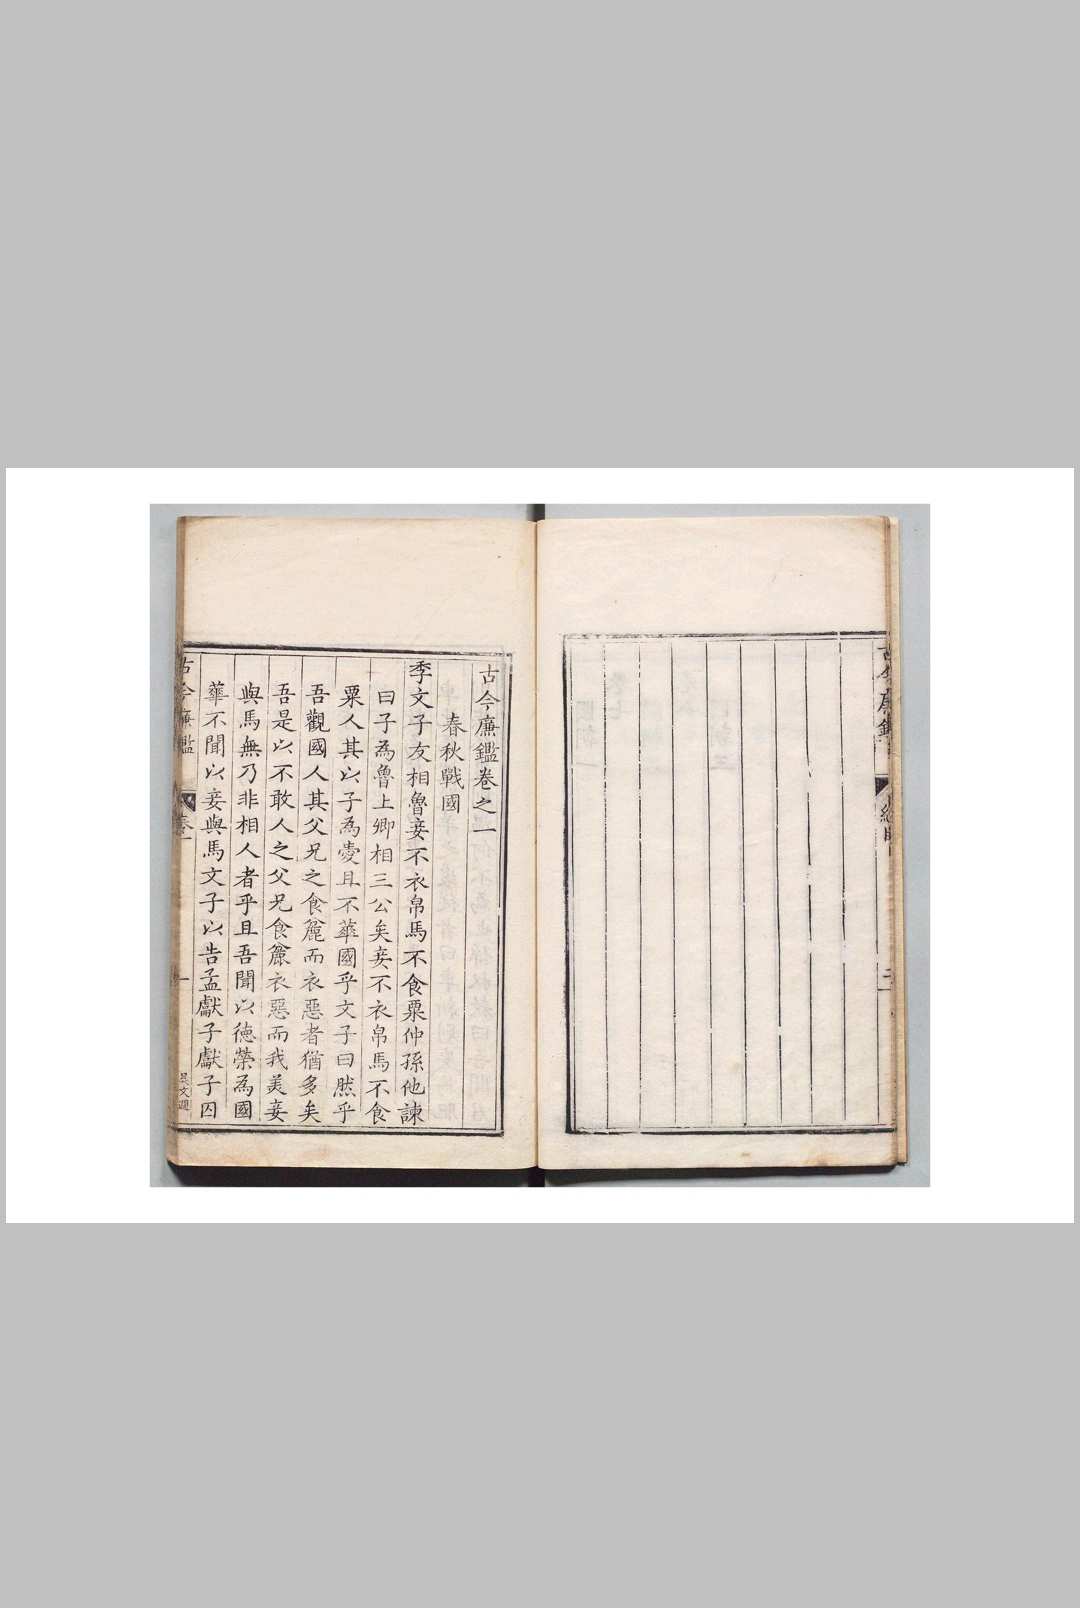 古今廉鑑
古今廉鑑卷之一
春秋戰國
季文子友相魯妾不衣帛馬不食粟仲孫他諫
曰子為魯上卿相三公矣妾不衣帛馬不食
粟人其以子為愛且不華國乎文子曰然乎
吾觀國人其父兄之食麄而衣惡者猶多矣
吾是以不敢人之父兄食麄衣惡而我美妾
與馬無乃非相人者乎且吾聞以德榮為國
華不聞以妾與馬文子以告孟獻子獻子囚
古今廉鑑
卷一
一